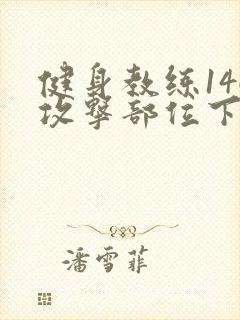 健身教练14
攻撃部位下
潘雪菲